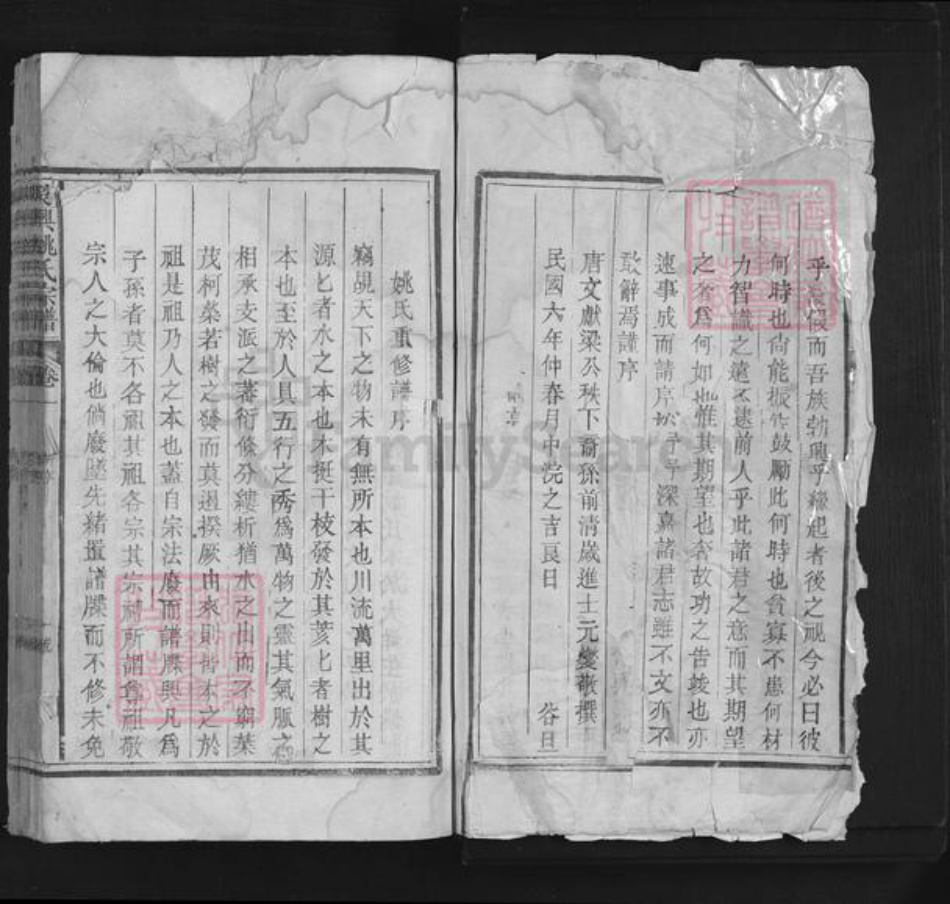 乎 假而吾族勃興乎繼起者後之視今必日彼
何時也尚能振作鼓勵此何時也貧寡不患何材
力智識之遠不逮前人乎此諸君之意而其期望
之者爲何如也惟其期望也奢故功之告竣也亦
速事成而請序於予予深嘉諸君志雖不文亦不
敢辭焉謹序
唐文獻梁公秩下裔孫前清歲進士元燮敬撰
民國六年仲春月中浣之吉良日 谷旦
姚氏重修譜序
竊覘天下之物未有無所本也川流萬里出於其
源匕者水之本也木挺干枝發於其荄匕者樹之
本也至於人具五行之秀爲萬物之靈其氣脈之
相承支派之蕃衍條分縷析猶水之出而不窮葉
茂柯榮若樹之發而莫遏揆厥由來則皆本之於
祖是祖乃人之本也蓋自宗法廢而譜牒興凡爲
子孫者莫不各祖其祖各宗其宗 所謂尊祖敬
宗人之大倫也倘廢墜先緒置譜牒而不修未免
興姚氏宗譜 卷
FamilySearch